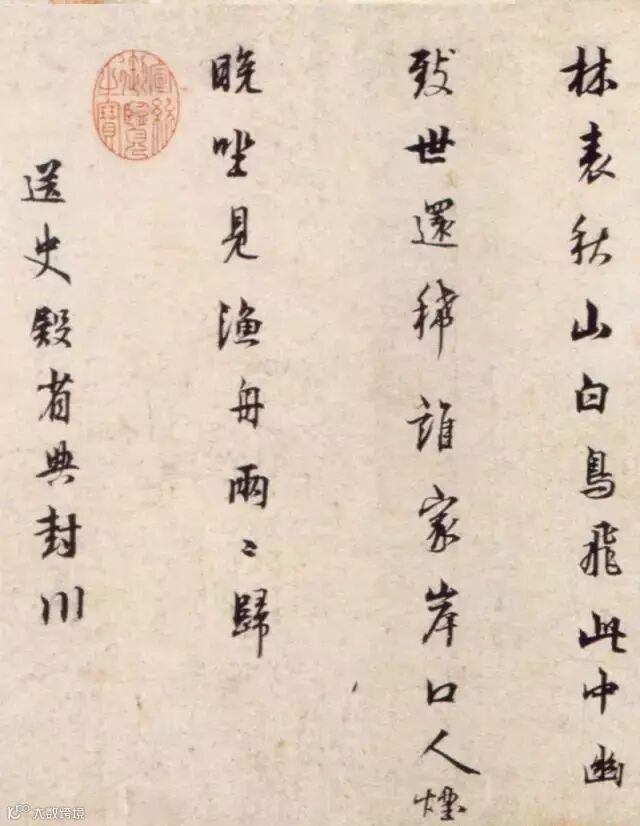 林表秋山白鳥飛此中幽
致世還稀誰家岸口人煙
晚坐見漁舟兩〻歸
送史殿省典封川
大数跨境